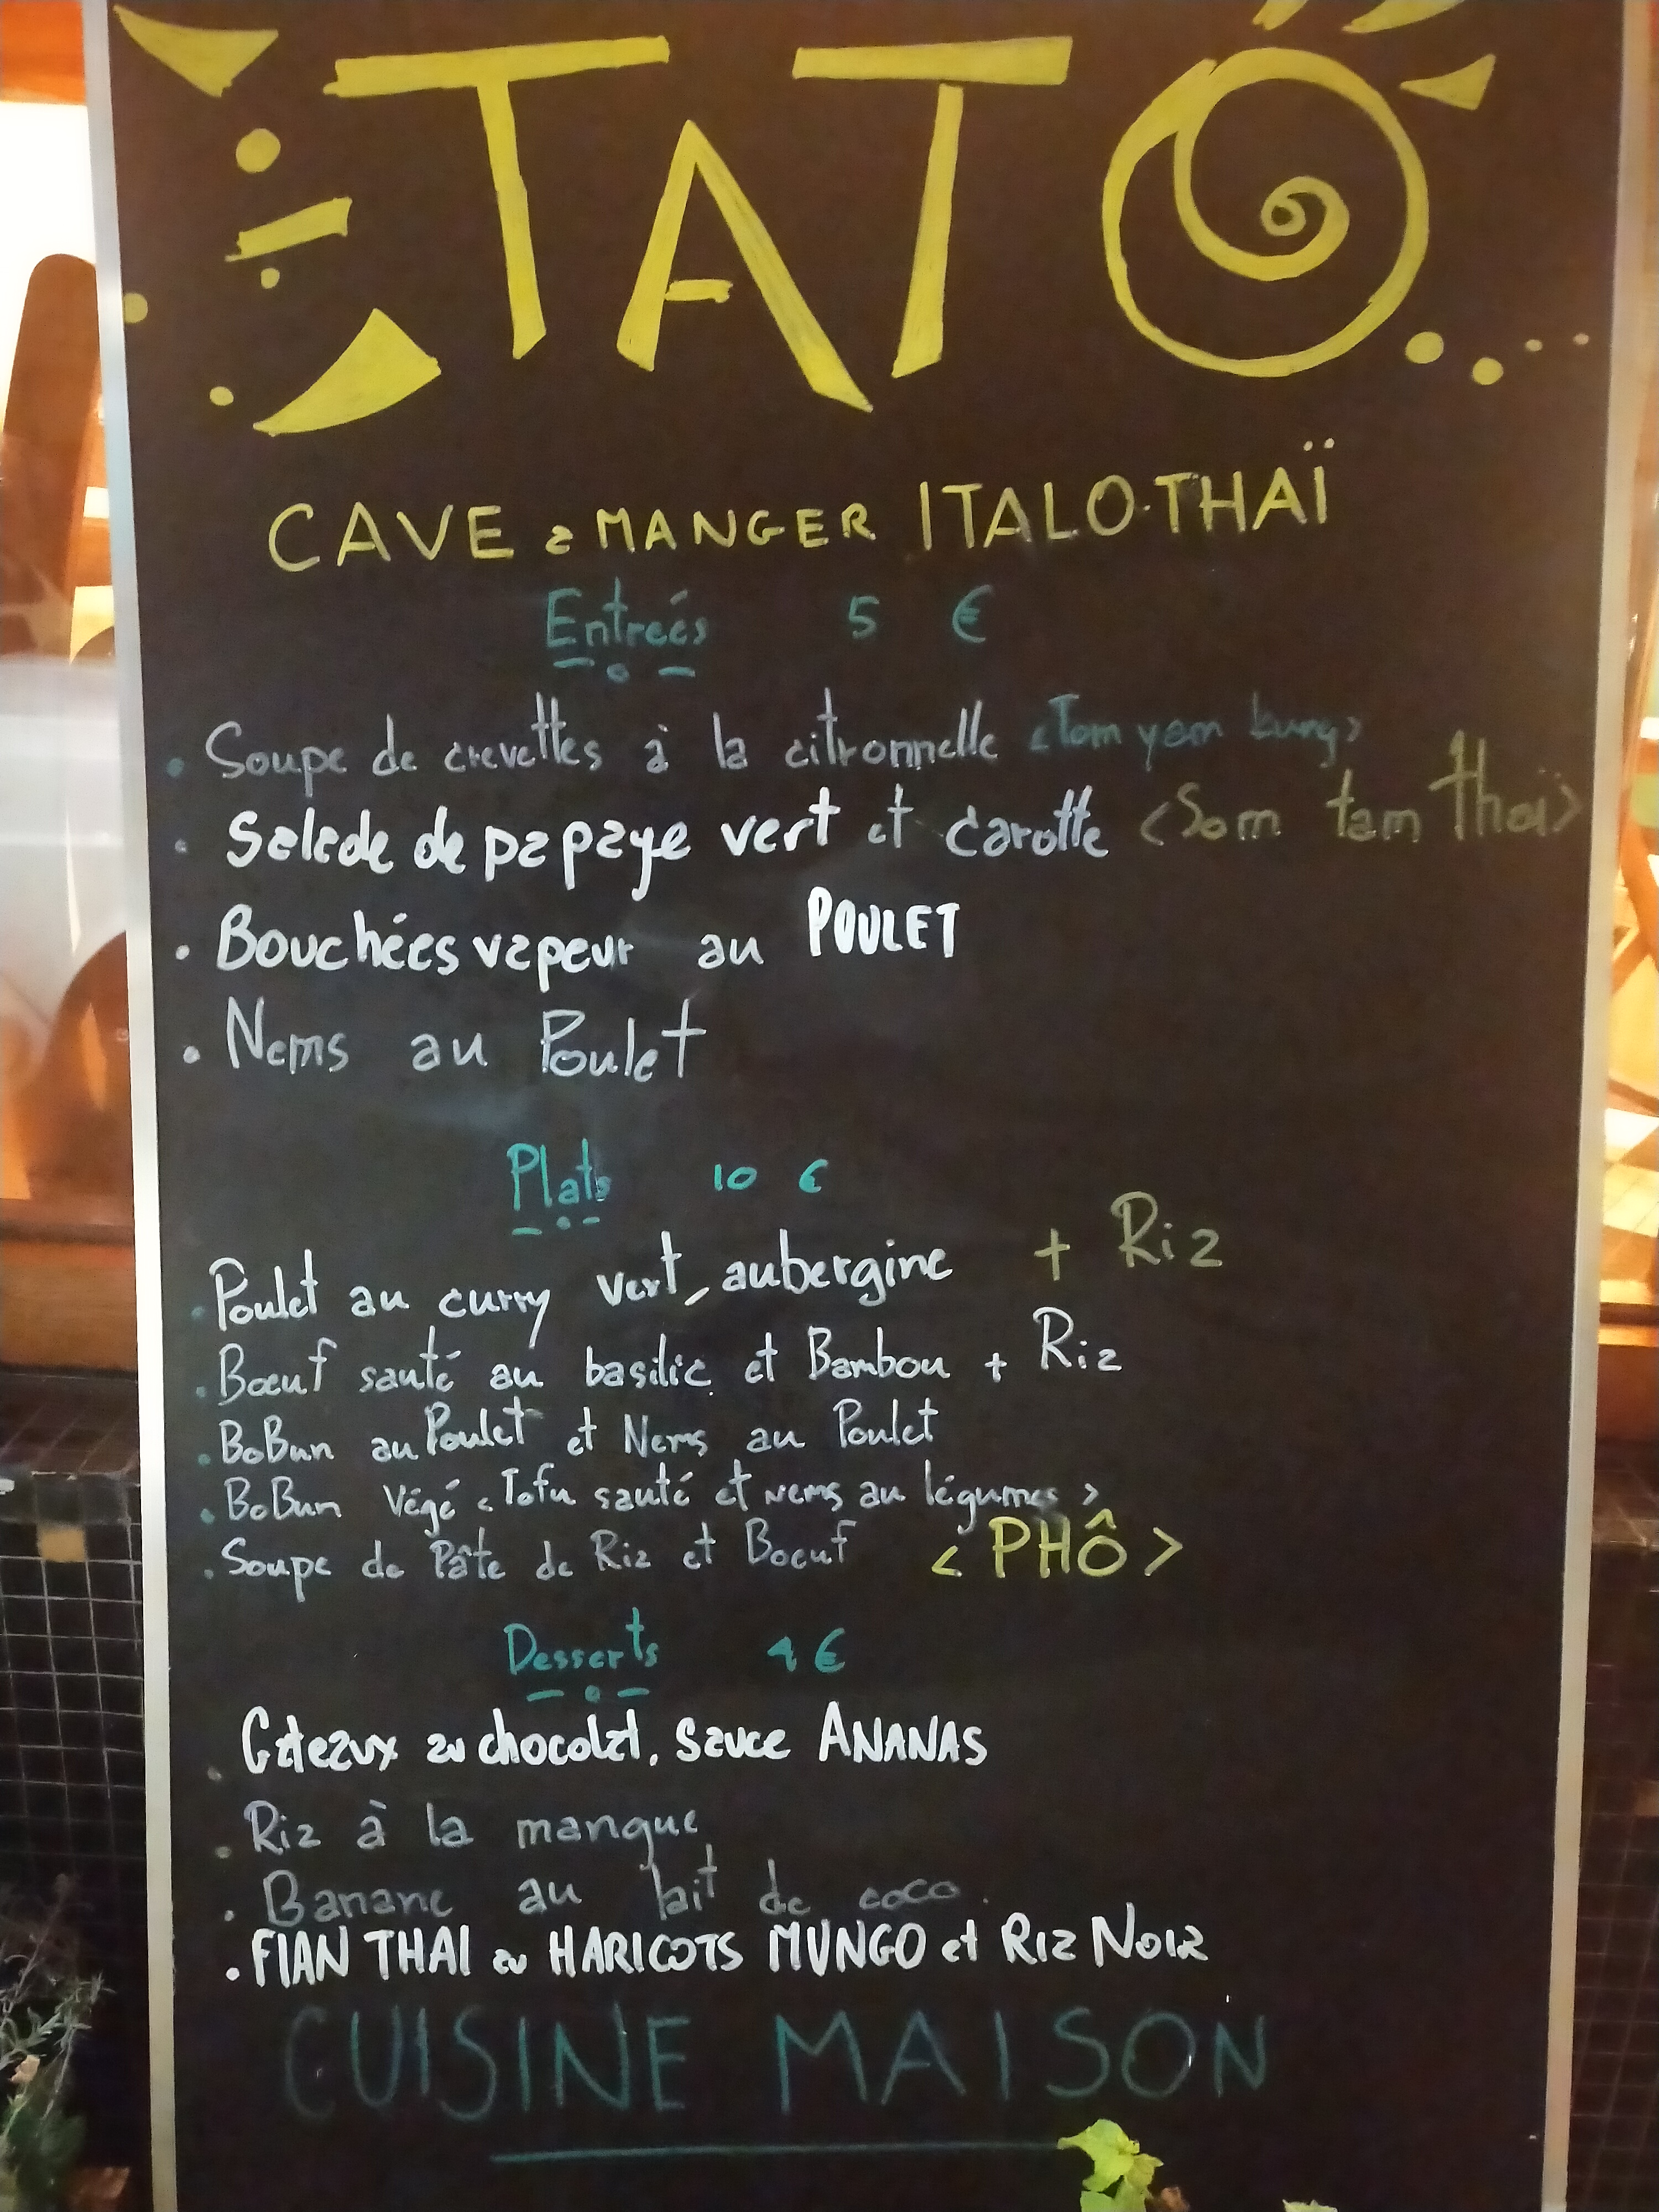 TATO
CAVE à MANGER ITALO·THAÏ
Entreés 5 €
• Soupe de crevettes à la citronnelle <Tom yam kung>
• Salade de papaye vert et carotte <Som tam thaï>
• Bouchées vapeur au POULET
• Nems au Poulet
Plats 10 €
• Poulet au curry vert, aubergine + Riz
• Bœuf sauté au basilic et Bambou + Riz
• BoBun au Poulet et Nems au Poulet
• BoBun Végé <Tofu sauté et nems au légumes>
• Soupe de Pâte de Riz et Boeuf <PHÔ>
Desserts 4 €
• Gâteaux au chocolat, sauce ANANAS
• Riz à la mangue
• Banane au lait de coco.
• FlAN THAI au HARICOTS MUNGO et RIZ NOIR
CUISINE MAISON